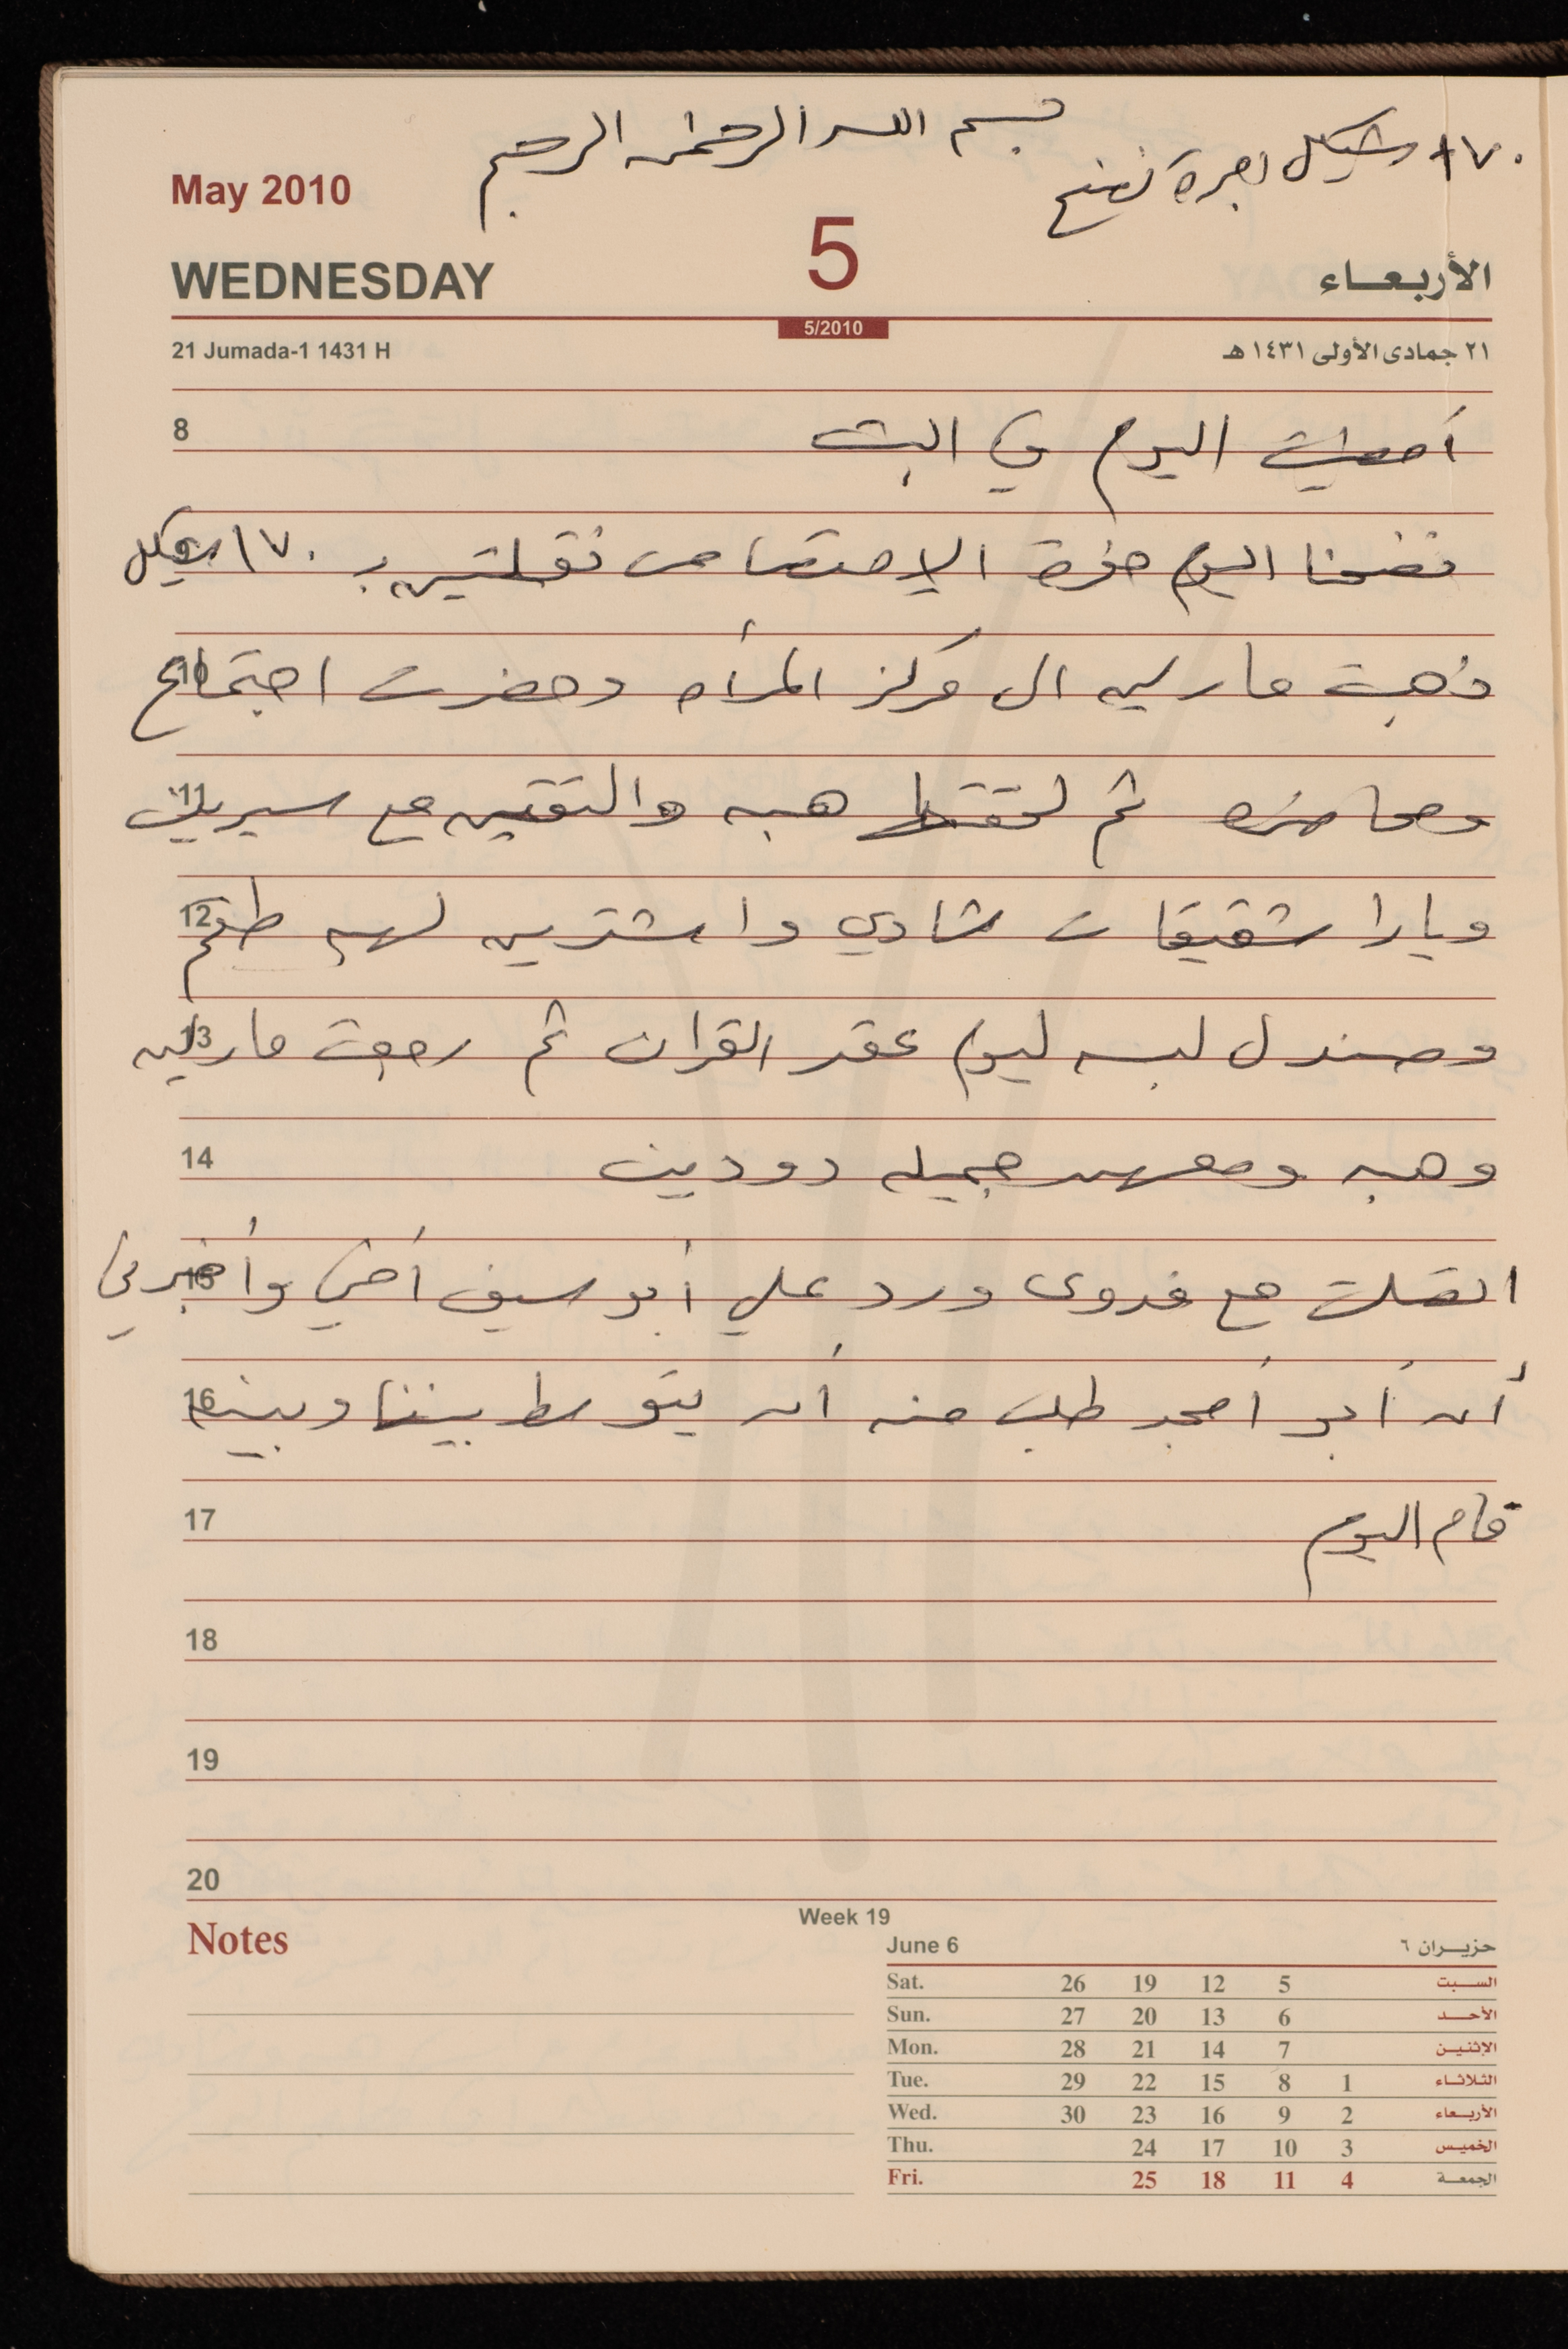 بسم الله الرحمن الرحيم
١٧٠ شيكل اجرة نضح
May 2010
WEDNESDAY 5 الأربعاء
5/2010
21 Jumada-1 1431 H ٢١ جمادى الأولى ١٤٣١ هـ
8 أمضيت اليوم في البيت
نضحنا اليوم حفرة الإمتصاص نقلتين بـ ١٧٠ شيكل
10 ذهبت مارلين الى مركز المرأه وحضرت اجتماع
11 ومحاضره ثم لحقتها هبه والتقين مع سيرين
12 ويارا شقيقات شادي واشترين لهبه طقم
13 وصندل لبسه ليوم عقد القران ثم رجعت مارلين
14 وهبه ومعهن جميله دودين
15 اتصلت مع فدوى ورد علي أبو سيف أخي وأخبرني
16 أن أبو أمجد طلب منه أن يتوسط بيننا وبينهم
17 قام اليوم
18
19
20
Notes
Week 19
June 6 حزيران ٦
Sat. 26 19 12 5 السبت
Sun. 27 20 13 6 الأحد
Mon. 28 21 14 7 الإثنين
Tue. 29 22 15 8 1 الثلاثاء
Wed. 30 23 16 9 2 الأربعاء
Thu. 24 17 10 3 الخميس
Fri. 25 18 11 4 الجمعة